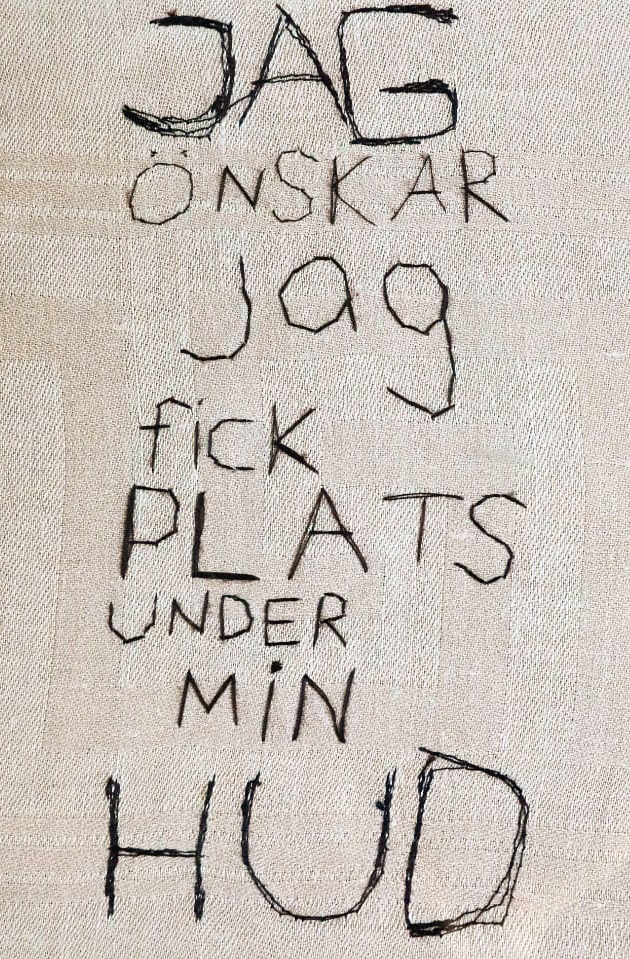 JAG
ÖNSKAR
jag
fick
PLATS
UNDER
MiN
HUD